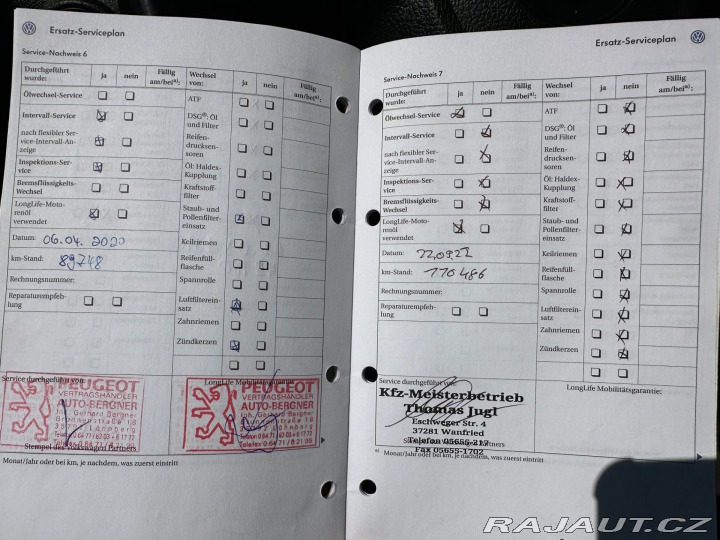 Ersatz-Serviceplan
Service-Nachweis 6
Durchgeführt wurde: ja nein Fällig am/bei a): Wechsel von: ja nein Fällig am/bei a):
Ölwechsel-Service
ATF
Intervall-Service
DSG®: Öl und Filter
nach flexibler Ser-
vice-Intervall-An-
zeige
Reifen-
drucksen-
soren
Inspektions-Ser-
vice
Öl: Haldex-
Kupplung
Bremsflüssigkeits-
Wechsel
Kraftstoff-
filter
LongLife-Moto-
renöl
verwendet
Staub- und
Pollenfilter-
einsatz
Datum: 06.04.2020
Keilriemen
km-Stand: 89748
Reifenfüll-
flasche
Rechnungsnummer:
Spannrolle
Reparaturempfeh-
lung
Luftfilterein-
satz
Zahnriemen
Zündkerzen
Service durchgeführt von:
LongLife Mobilitätsgarantie:
PEUGEOT
VERTRAGSHÄNDLER
AUTO-BERGNER
Inh. Gerhard Bergner
PEUGEOT
VERTRAGSHÄNDLER
AUTO-BERGNER
Inh. Gerhard Bergner
Stempel des Volkswagen Partners
a) Monat/Jahr oder bei km, je nachdem, was zuerst eintritt
Ersatz-Serviceplan
Service-Nachweis 7
Durchgeführt wurde: ja nein Fällig am/bei a): Wechsel von: ja nein Fällig am/bei a):
Ölwechsel-Service
ATF
Intervall-Service
DSG®: Öl und Filter
nach flexibler Ser-
vice-Intervall-An-
zeige
Reifen-
drucksen-
soren
Inspektions-Ser-
vice
Öl: Haldex-
Kupplung
Bremsflüssigkeits-
Wechsel
Kraftstoff-
filter
LongLife-Moto-
renöl
verwendet
Staub- und
Pollenfilter-
einsatz
Datum:
Keilriemen
km-Stand: 110486
Reifenfüll-
flasche
Rechnungsnummer:
Spannrolle
Reparaturempfeh-
lung
Luftfilterein-
satz
Zahnriemen
Zündkerzen
Service durchgeführt von:
LongLife Mobilitätsgarantie:
Kfz-Meisterbetrieb
Thomas Jugl
Eschweger Str. 4
37281 Wanfried
Telefon 05655-217
Fax 05655-1702
a) Monat/Jahr oder bei km, je nachdem, was zuerst eintritt
RAJAUT.CZ